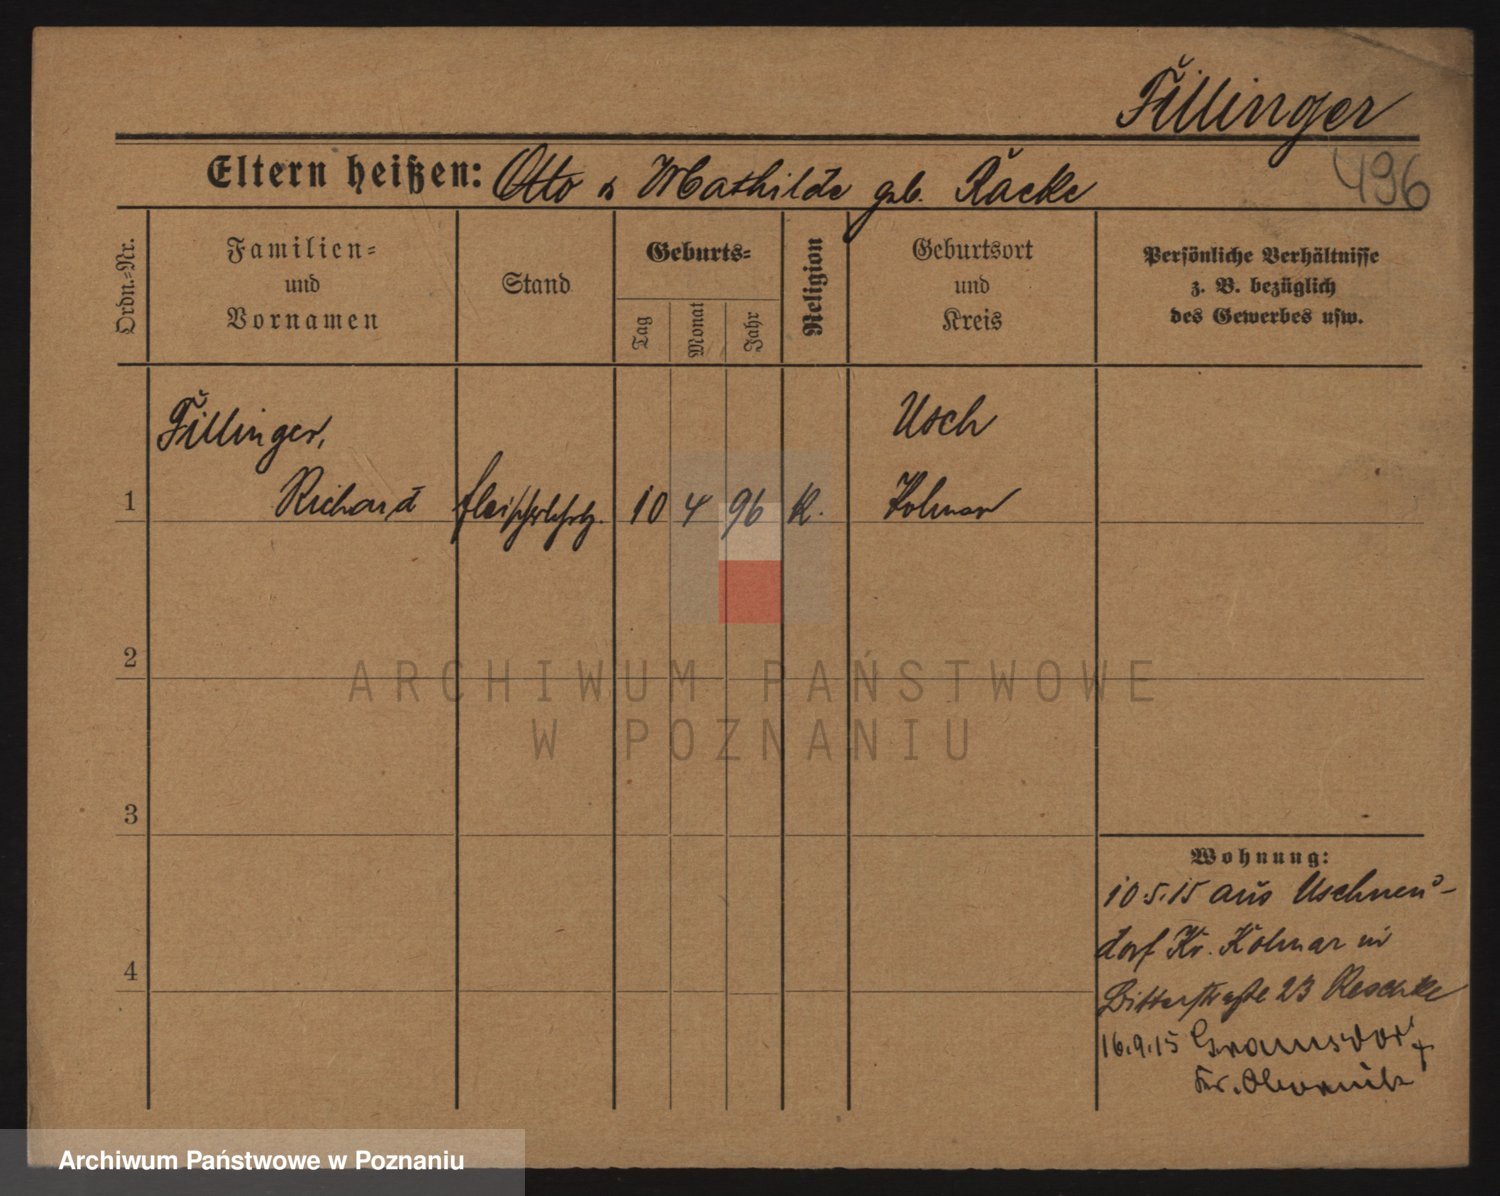 Fillinger
496
Eltern heißen: Otto u Mathilde geb. Racke
Ordn.=Nr.
Familien=
und
Vornamen
Stand
Geburts=
Tag
Monat
Jahr
Religion
Geburtsort
und
Kreis
Persönliche Verhältnisse
z. B. bezüglich
des Gewerbes usw.
Fillinger,
Usch
1 Richard Fleischerlehrlg. 10 4 96 K. Kolmar
2
ARCHIWUM PAŃSTWOWE
W POZNANIU
3
Wohnung:
10.5.15 aus Uschneu-
dorf Kr. Kolmar in
4
Bitterstraße 23 Reschke
16.9.15 Gramsdorf
Kr. Obornik
Archiwum Państwowe w Poznaniu